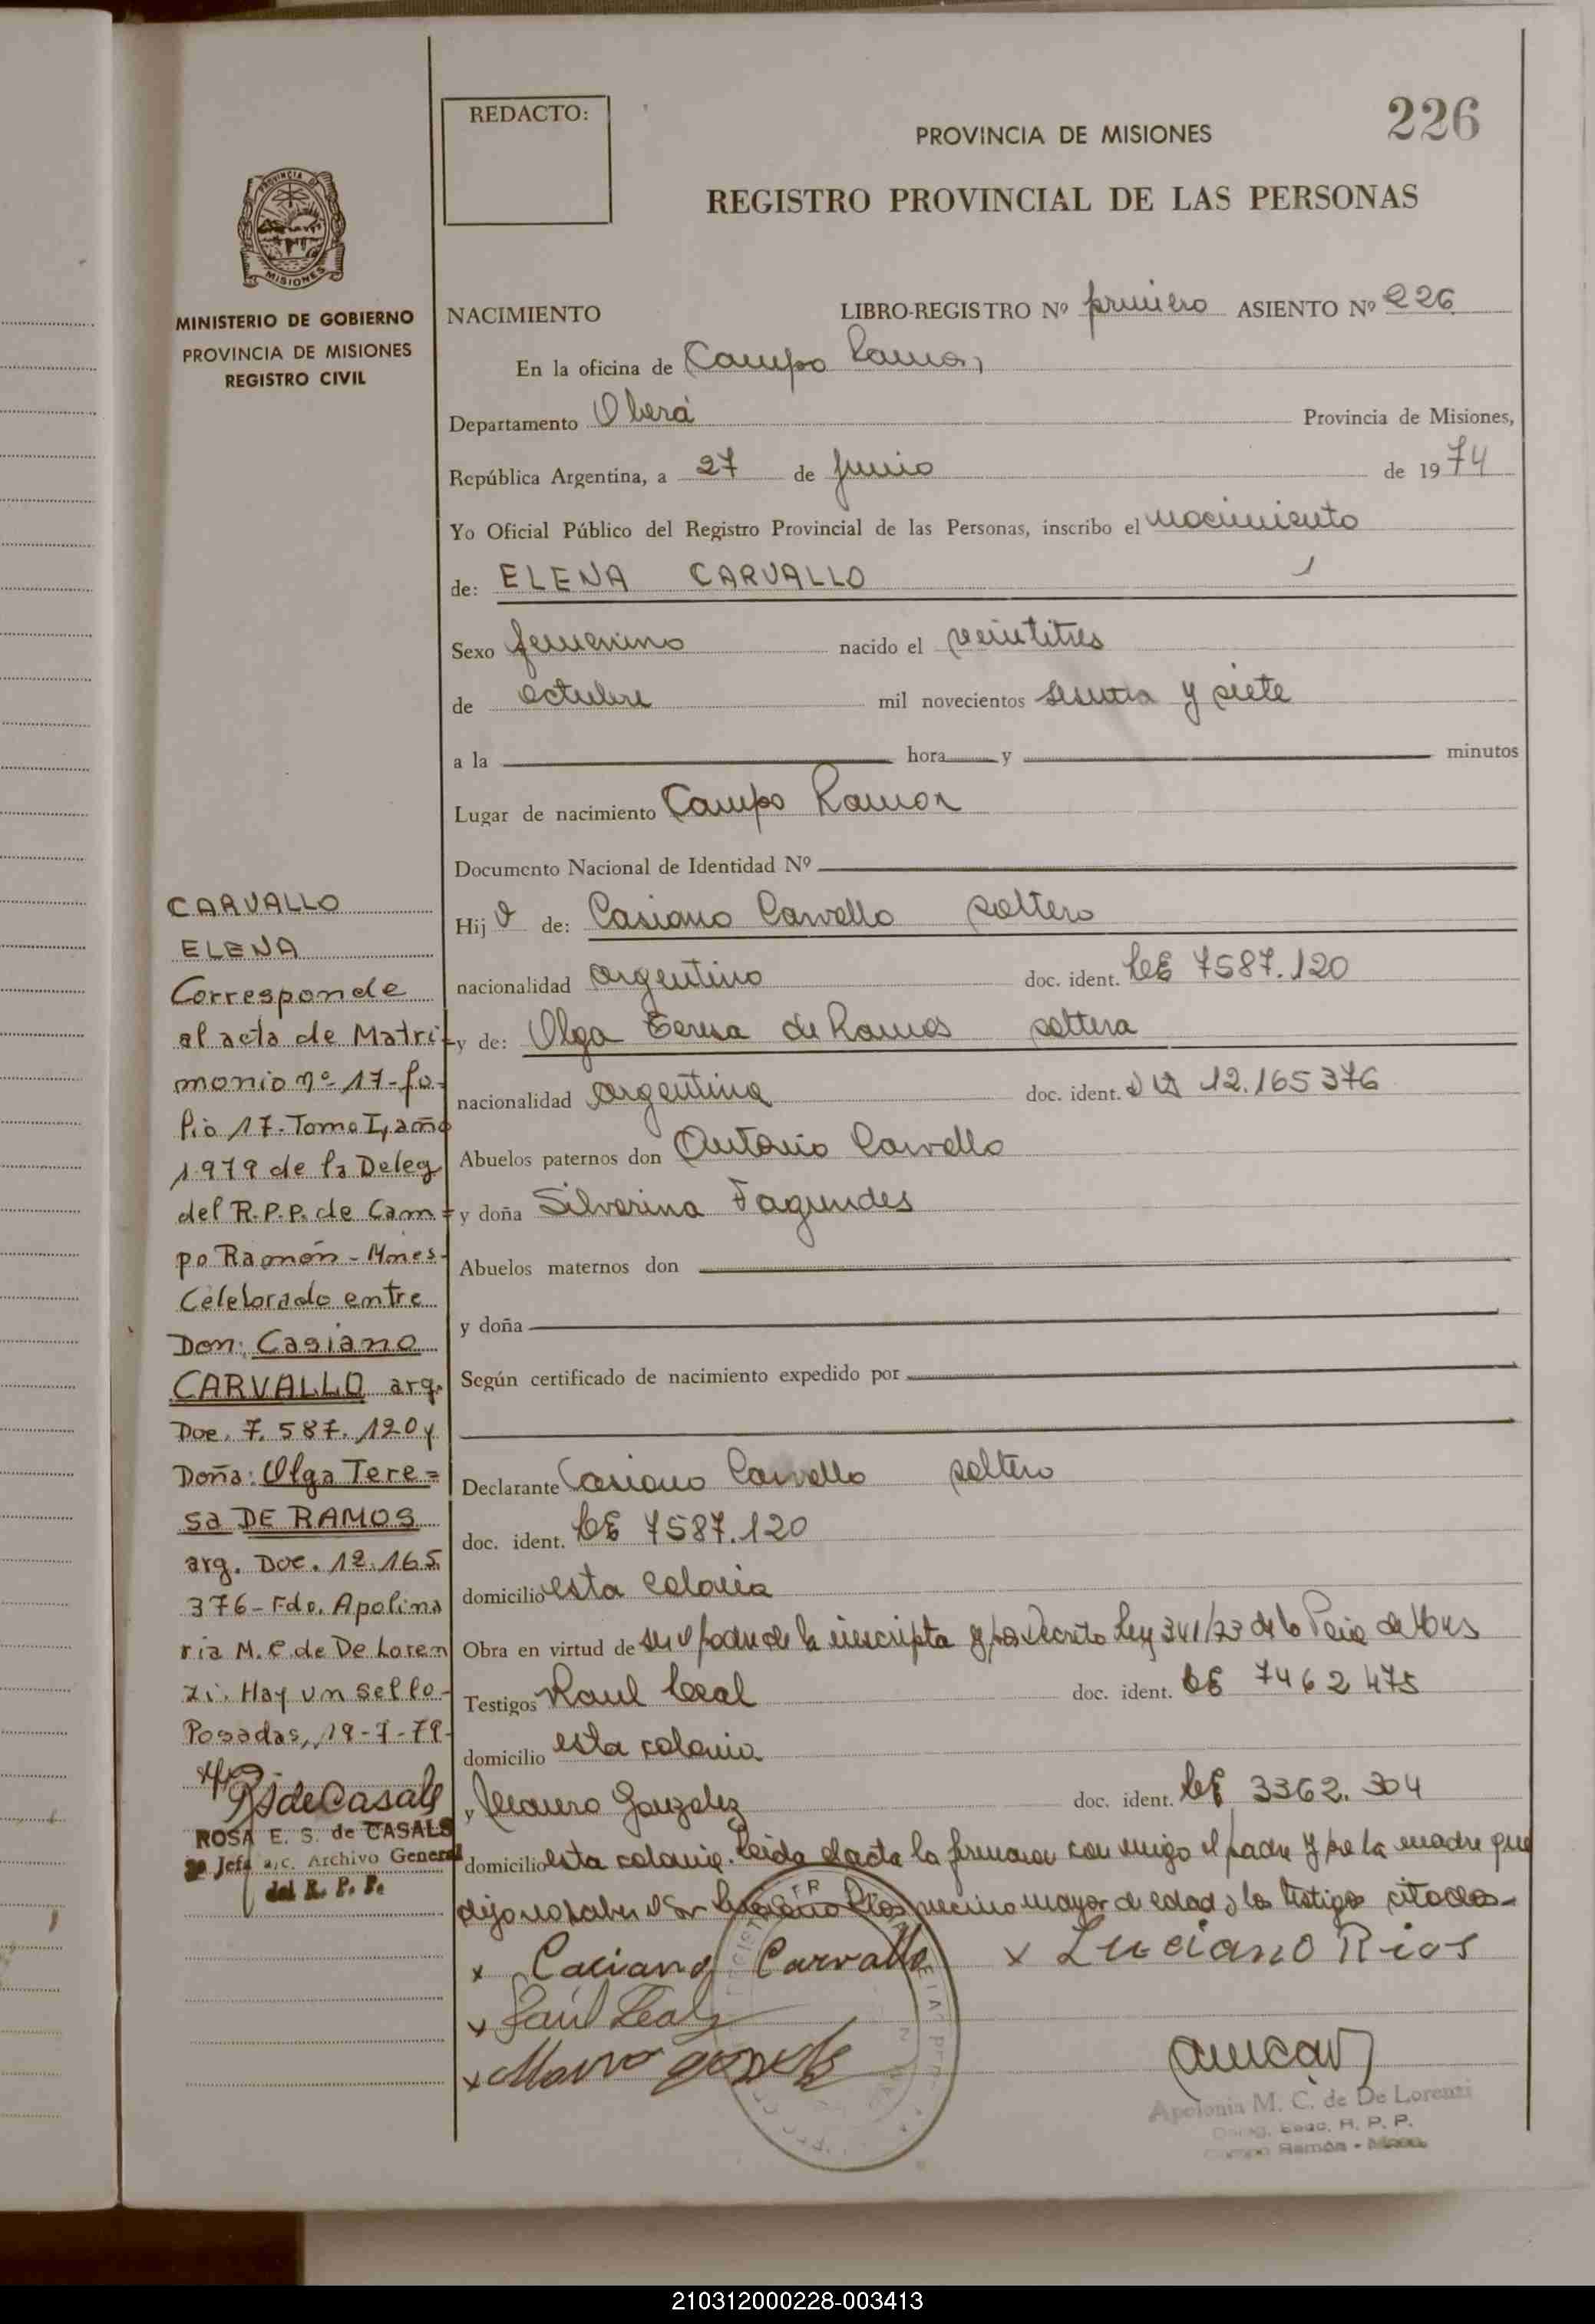 REDACTO:
PROVINCIA DE MISIONES
226
REGISTRO PROVINCIAL DE LAS PERSONAS
PROVINCIA DE
MISIONES
MINISTERIO DE GOBIERNO
PROVINCIA DE MISIONES
REGISTRO CIVIL
NACIMIENTO LIBRO-REGISTRO Nº primero ASIENTO Nº 226
En la oficina de Campo Ramon
Departamento Oberá Provincia de Misiones,
República Argentina, a 27 de Junio de 1974
Yo Oficial Público del Registro Provincial de las Personas, inscribo el nacimiento
de: ELENA CARVALLO
Sexo femenino nacido el veintitres
de octubre mil novecientos sesenta y siete
a la hora y minutos
Lugar de nacimiento Campo Ramon
Documento Nacional de Identidad Nº
Hija de: Casiano Carvallo soltero
nacionalidad argentino doc. ident. LE 7587.120
y de: Olga Teresa de Ramos soltera
nacionalidad argentina doc. ident. 12.165376
Abuelos paternos don Antonio Carvallo
y doña Silverina Fagundes
Abuelos maternos don
y doña
Según certificado de nacimiento expedido por
Declarante Casiano Carvallo soltero
doc. ident. LE 7587.120
domicilio esta colonia
Obra en virtud de ser padre de la inscripta y por Decreto Ley 341/73 de la Pcia de Mnes
Testigos Raul Leal doc. ident. LE 7462475
domicilio esta colonia
y Mauro Gonzalez doc. ident. LE 3362.304
domicilio esta colonia. Leida el acta la firman conmigo el padre y por la madre que
dijo no saber el Sr Luciano Rios vecino mayor de edad y los testigos citados-
x Caciano Carvallo x Luciano Rios
x Raúl Leal
x Mauro
Apolonia M. C. de De Lorenzi
R. P. P.
Campo Ramón - Mnes.
CARVALLO
ELENA
Corresponde
al acta de Matri-
monio nº 17-fo-
lio 17-Tomo I, año
1979 de la Deleg
del R.P.P. de Cam=
po Ramón - Mnes-
Celebrado entre
Don: Casiano
CARVALLO arg.
Doc. 7.587.120 y
Doña: Olga Tere=
sa DE RAMOS
arg. Doc. 12.165.
376- Fdo. Apolina
ria M.C. de De Loren
zi. Hay un sello-
Posadas, 19-7-79-
RSdeCasals
ROSA E. S. de CASALS
Jefa a/c. Archivo General
del R. P. P.
210312000228-003413